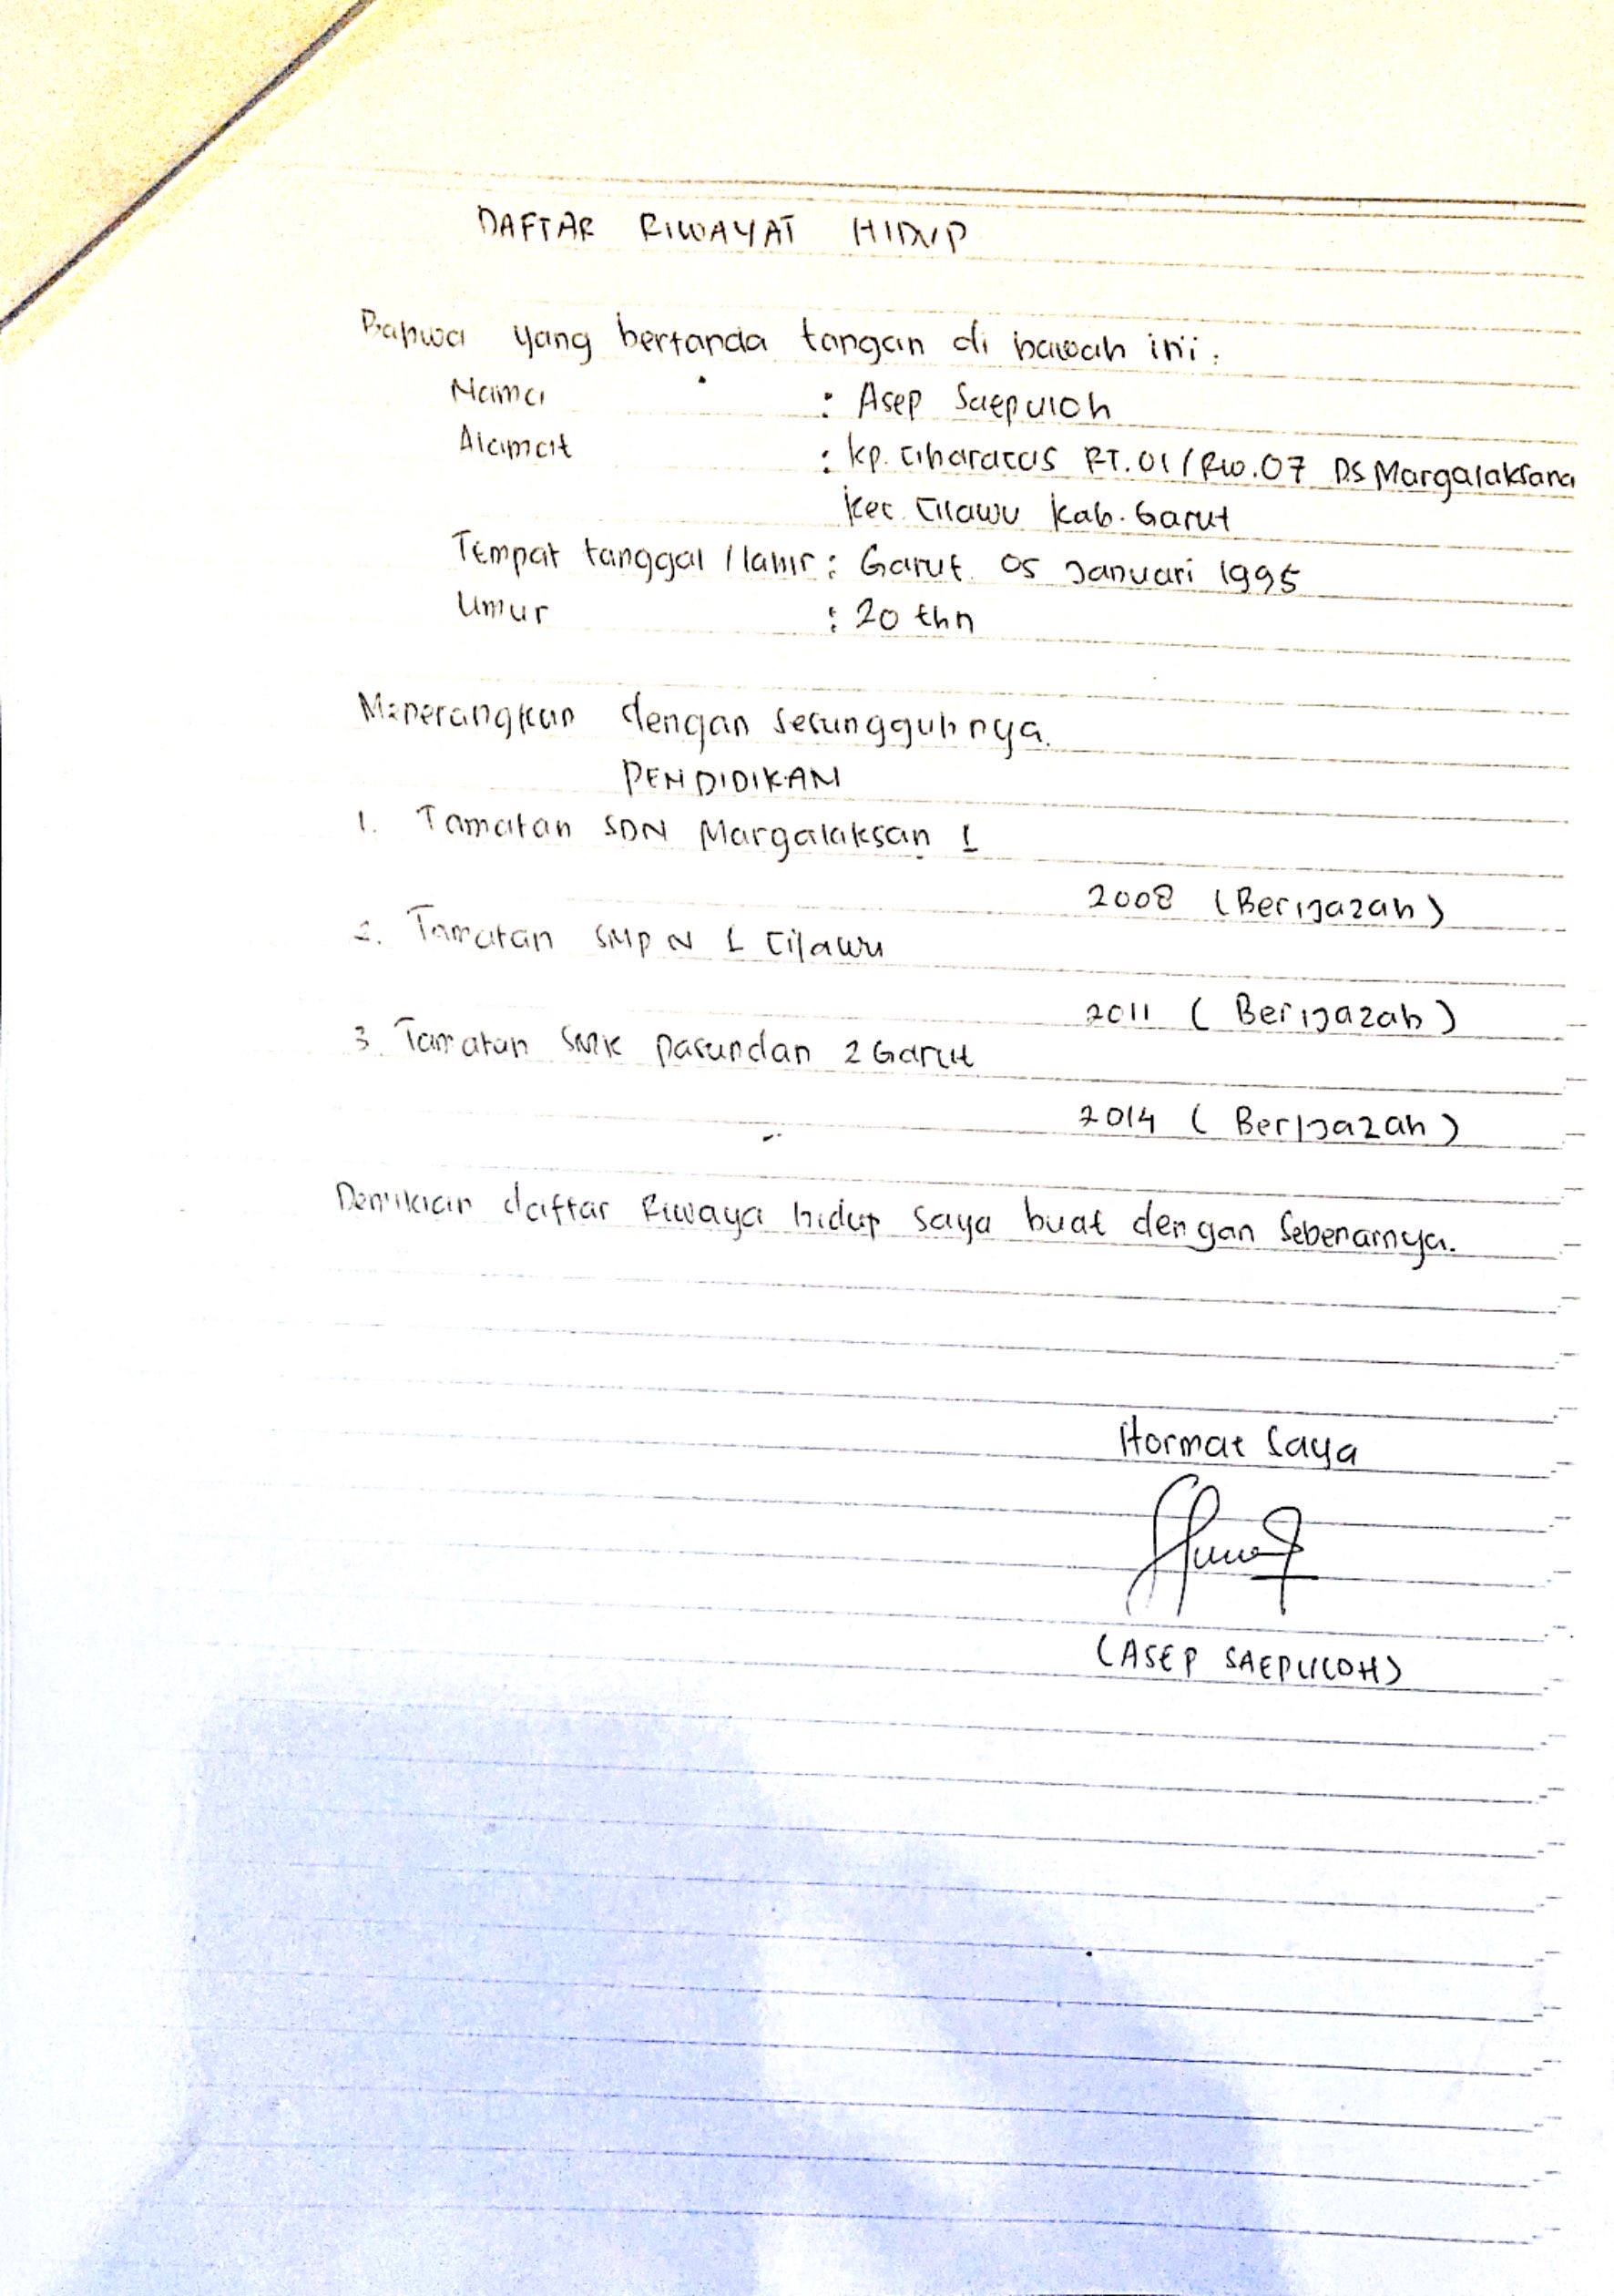 DAFTAR RIWAYAT HIDUP
Bahwa yang bertanda tangan di bawah ini :
Nama : Asep Saepuloh
Alamat : kp. Ciharacas RT.01/RW.07 DS Margalaksana
kec. Cilawu kab. Garut
Tempat tanggal / lahir : Garut. 05 Januari 1995
Umur : 20 thn
Menerangkan dengan sesungguhnya.
PENDIDIKAN
1. Tamatan SDN Margalaksan 1
2008 (Berijazah)
2. Tamatan SMP N 1 Cilawu
2011 (Berijazah)
3 Tamatan SMK pasundan 2 Garut
2014 (Berijazah)
Demikian daftar Riwaya hidup saya buat dengan Sebenarnya.
Hormat Saya
(ASEP SAEPULOH)